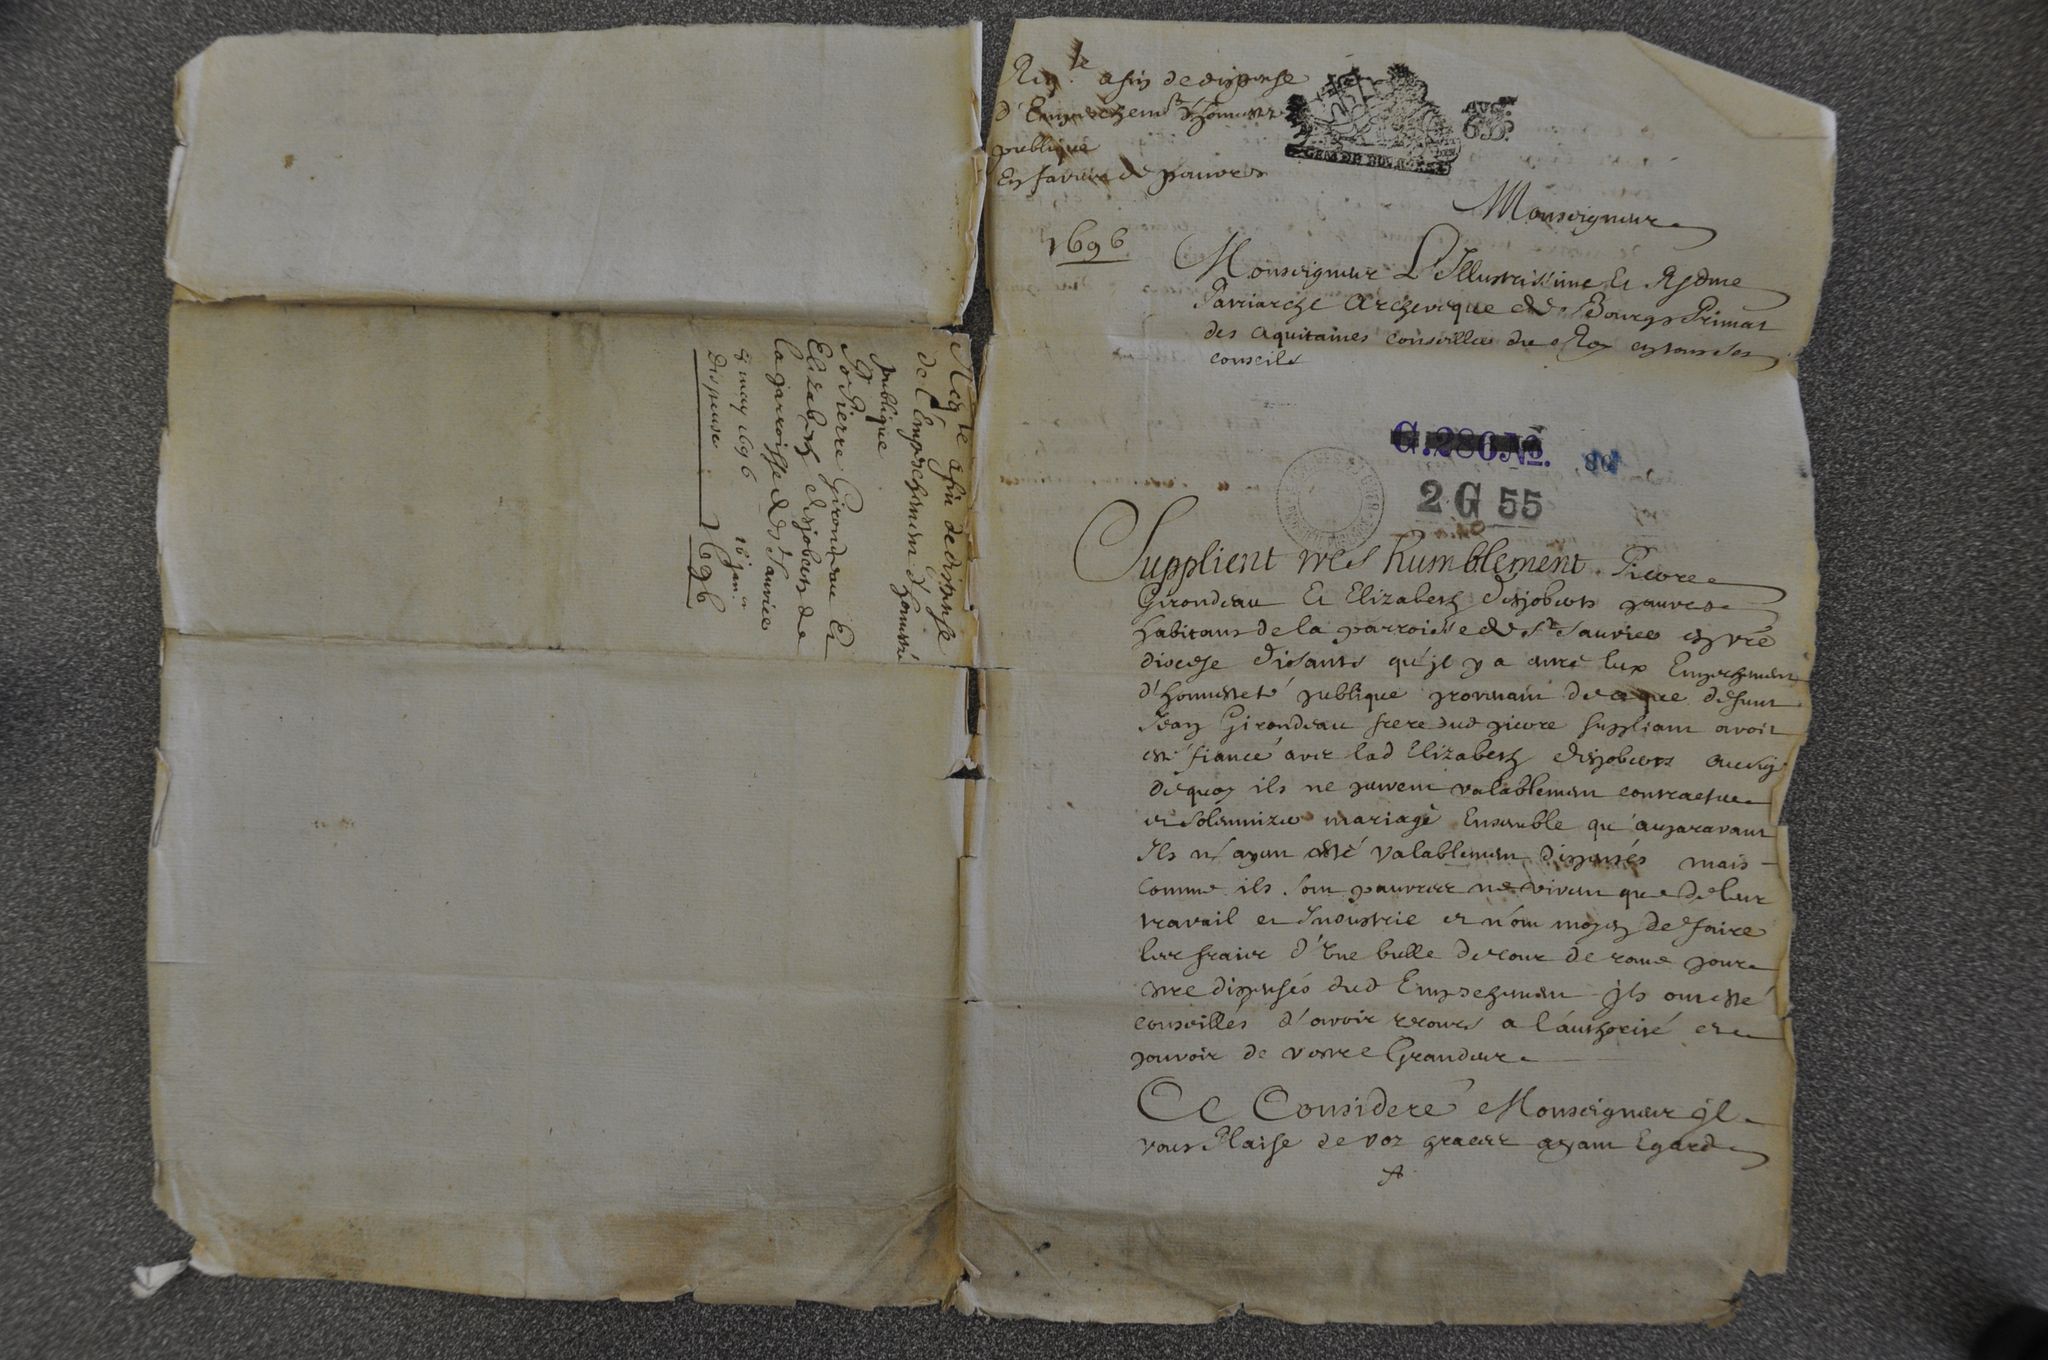 Reqte afin de dispense
d'Empeschemt d'honnesté
publique
En faveur de pauvres
1696
GEN. DE BOURGES
Monseigneur
Monseigneur L'Illustrissime Et Rdme
Patriarche Archeveque de Bourges Primat
des aquitaines conseiller du Roy en tous ses
conseils
G. 280 No.
2 G 55
Supplient tres humblement Pierre
Girondeau Et Elizabeth desjobers pauvres
habitans de la parroisse de St Sauvier en vre
diocese disants qu'jl y a entre eux Empeschement
d'honnesteté publique provenant de ce que defunt
Jean Girondeau frere dud pierre suppliant avoit
esté fiancé avec lad Elizabeth desjobers
de quoy ils ne peuvent valablement contracter
et solemnizer mariage Ensemble qu'auparavant
Ils n'ayent esté valablement dispensés mais
comme ils sont pauvres ne vivent que de leur
travail et Industrie et n'ont moyen de faire
les fraier d'une bulle de cour de rome pour
estre dispensés dud Empeschement jls ont esté
conseillés d'avoir recours a l'authorité et
pouvoir de vostre Grandeur
Ce Consideré Monseigneur jl
vous Plaise de voz graces ayant Egard
A
Reqte afin de dispense
de l'Empeschement d'honnesté
publique
Pr Pierre Girondeau Et
Elizabeth desjobers de
la parroisse de St Sauvier
8 may 1696 16 jan.
Dispense 1696